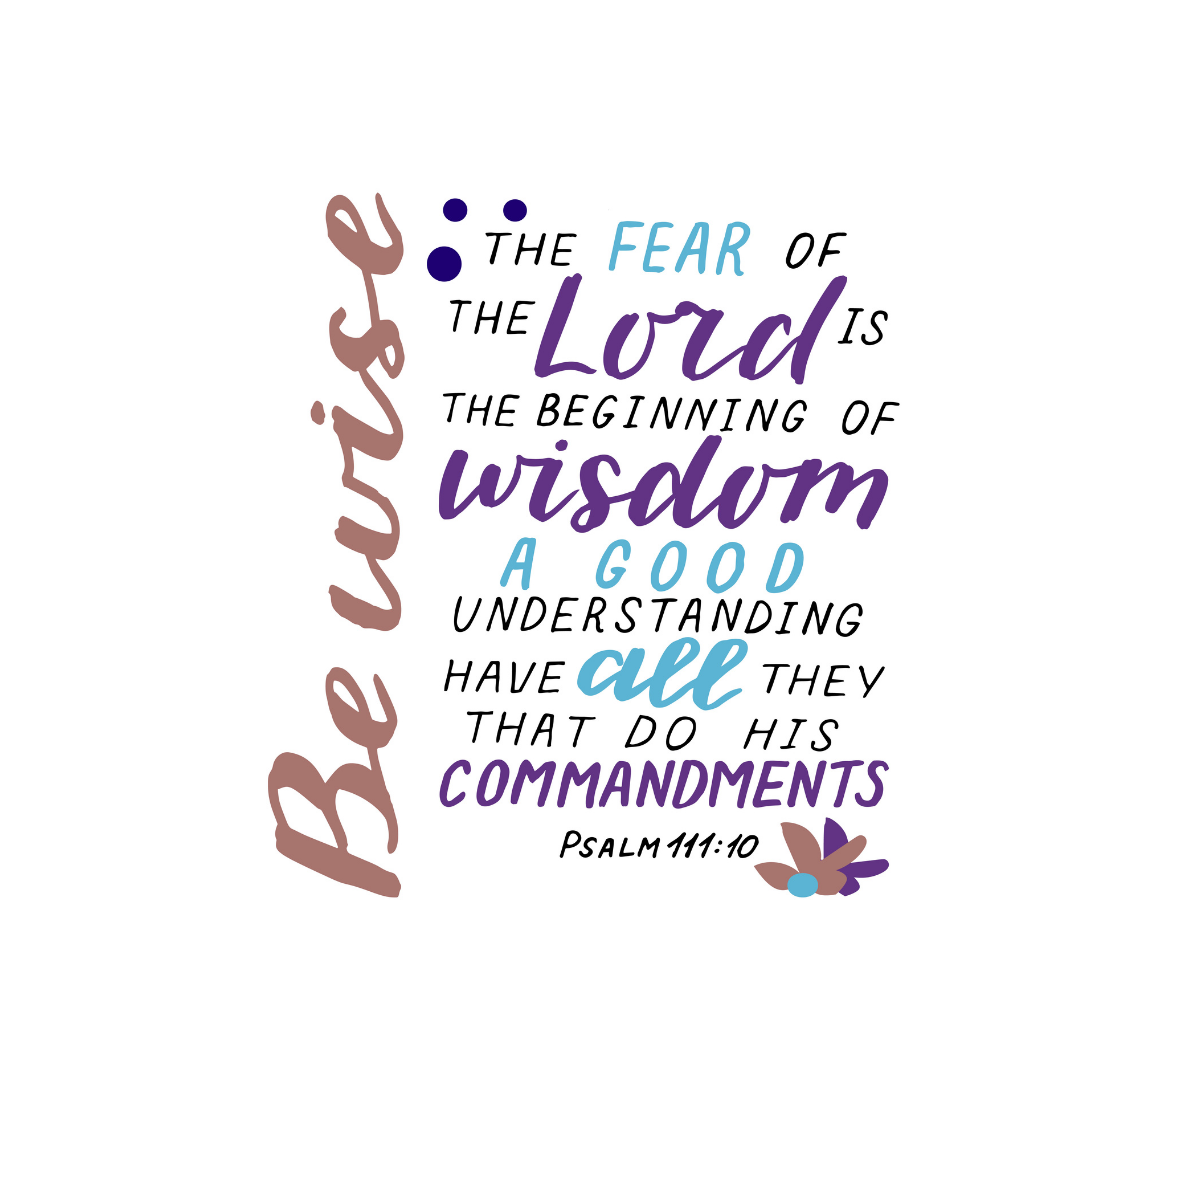 Be wise
THE FEAR OF
THE Lord IS
THE BEGINNING OF
wisdom
A GOOD
UNDERSTANDING
HAVE all THEY
THAT DO HIS
COMMANDMENTS
PSALM 111:10